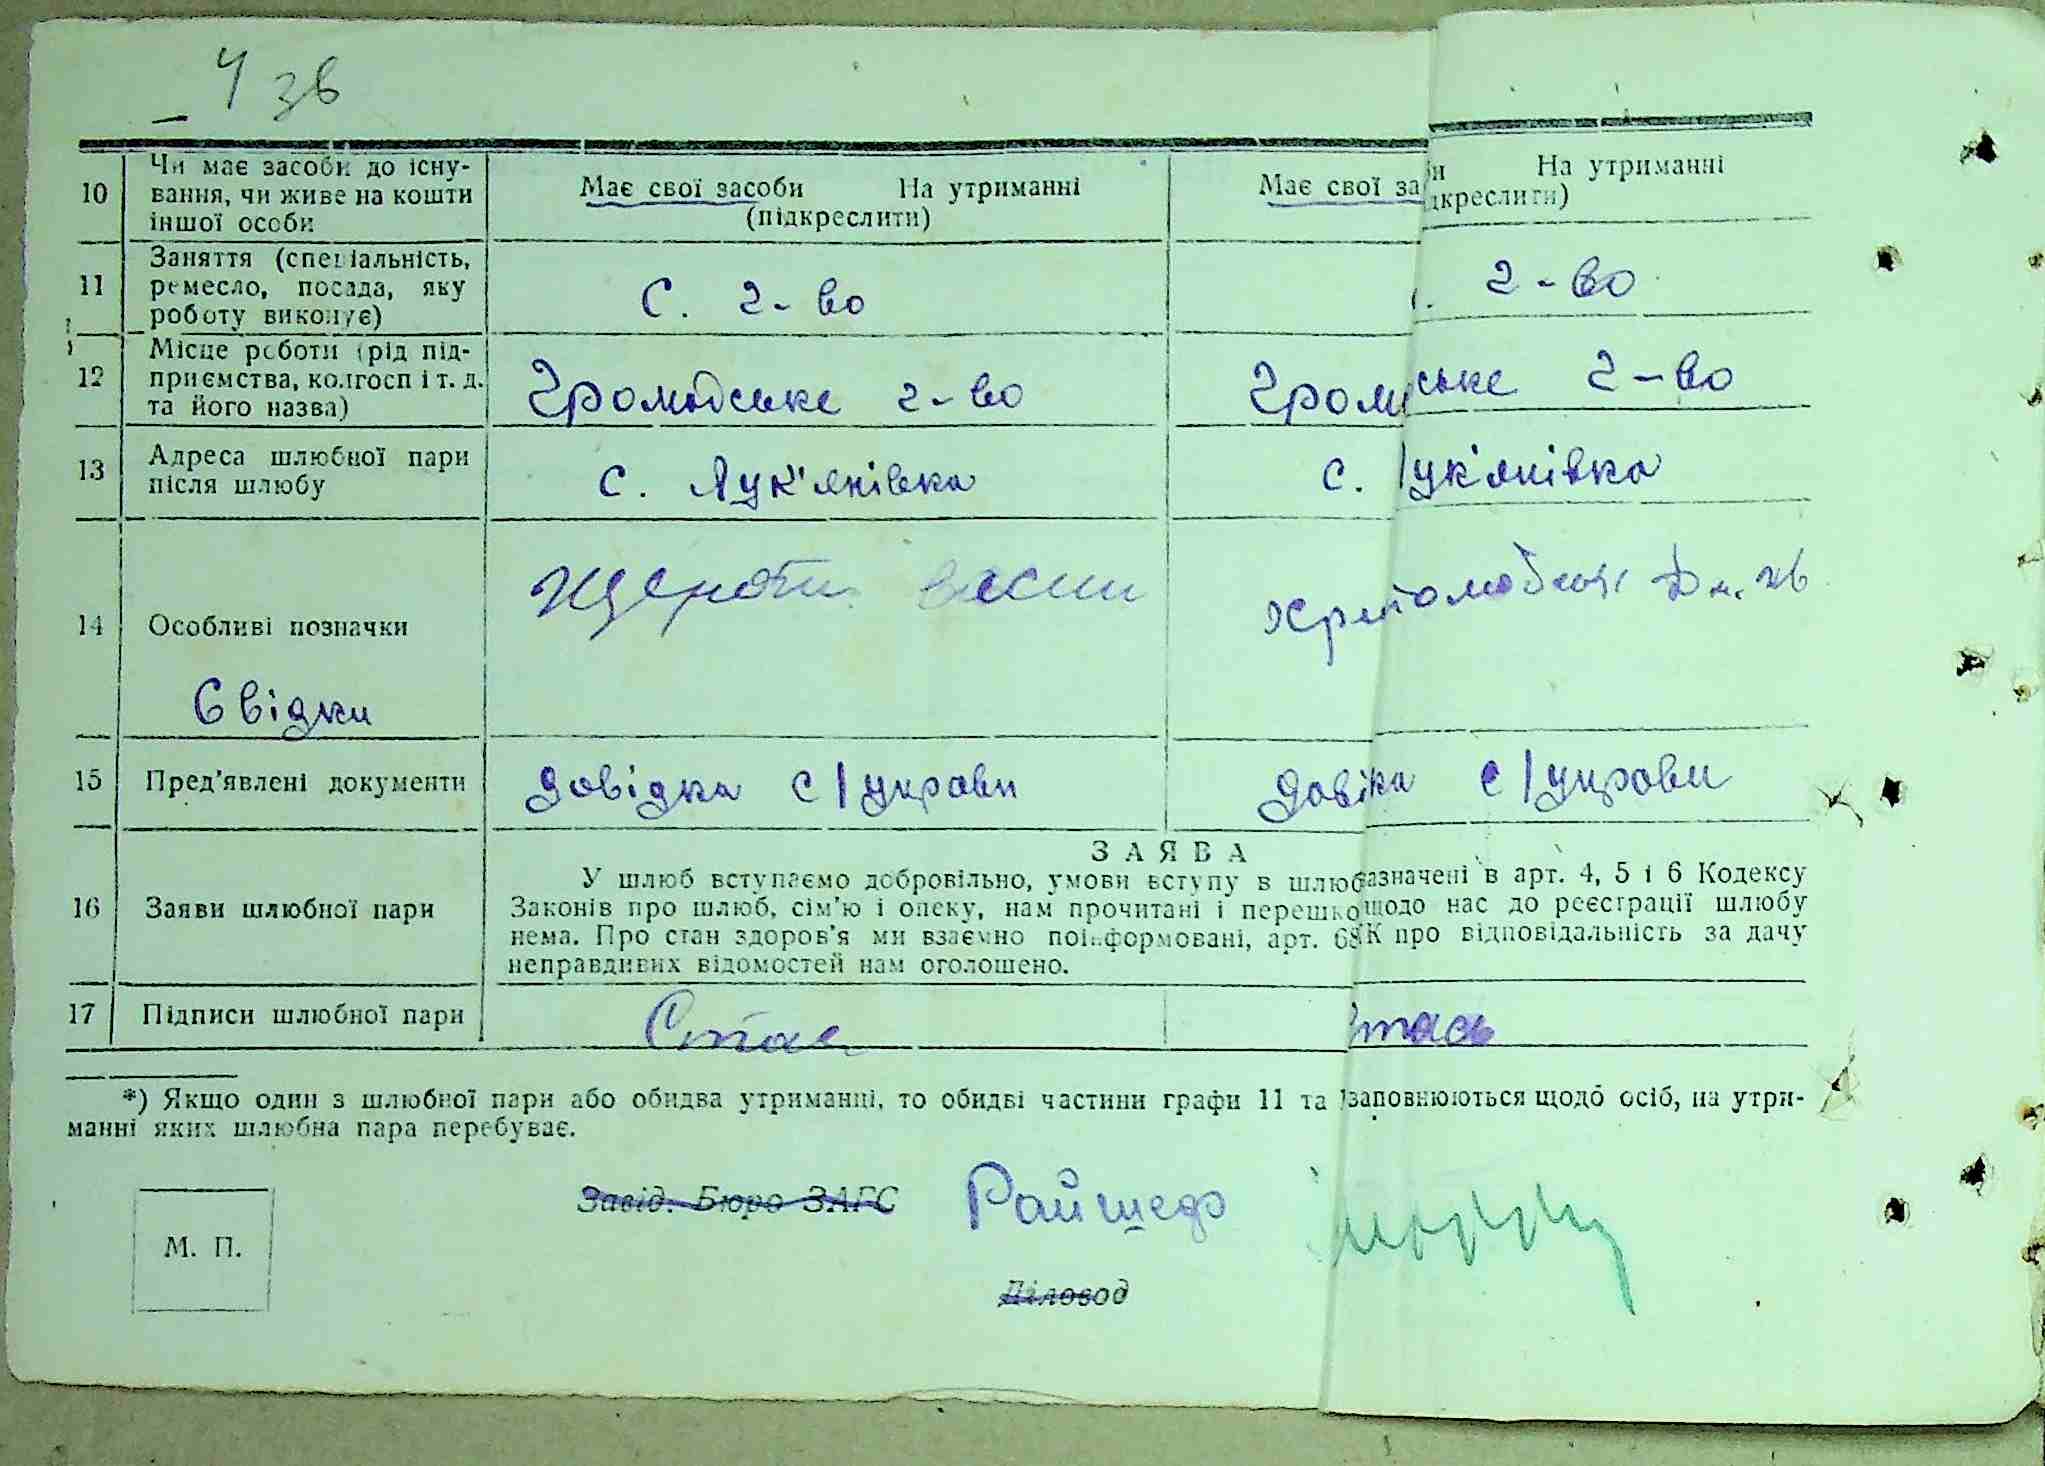 4 зв
10 Чи має засоби до існу-
вання, чи живе на кошти
іншої особи
Має свої засоби На утриманні
(підкреслити)
Має свої за би На утриманні
ідкреслити)
11 Заняття (спеціальність,
ремесло, посада, яку
роботу виконує)
С. г-во
. г-во
12 Місце роботи (рід під-
приємства, колгосп і т. д.
та його назва)
Громадське г-во
Громадське г-во
13 Адреса шлюбної пари
після шлюбу
с. Лук'янівка
с. Лук'янівка
14 Особливі позначки
Свідки
15 Пред'явлені документи
довідка с/управи
довідка с/управи
ЗАЯВА
16 Заяви шлюбної пари
У шлюб вступаємо добровільно, умови вступу в шлюб зазначені в арт. 4, 5 і 6 Кодексу
Законів про шлюб, сім'ю і опеку, нам прочитані і перешко щодо нас до реєстрації шлюбу
нема. Про стан здоров'я ми взаємно поінформовані, арт. 68 К про відповідальність за дачу
неправдивих відомостей нам оголошено.
17 Підписи шлюбної пари
Стась
*) Якщо один з шлюбної пари або обидва утриманці, то обидві частини графи 11 та заповнюються щодо осіб, на утри-
манні яких шлюбна пара перебуває.
Завід. Бюро ЗАГС Райшеф
М. П.
Діловод